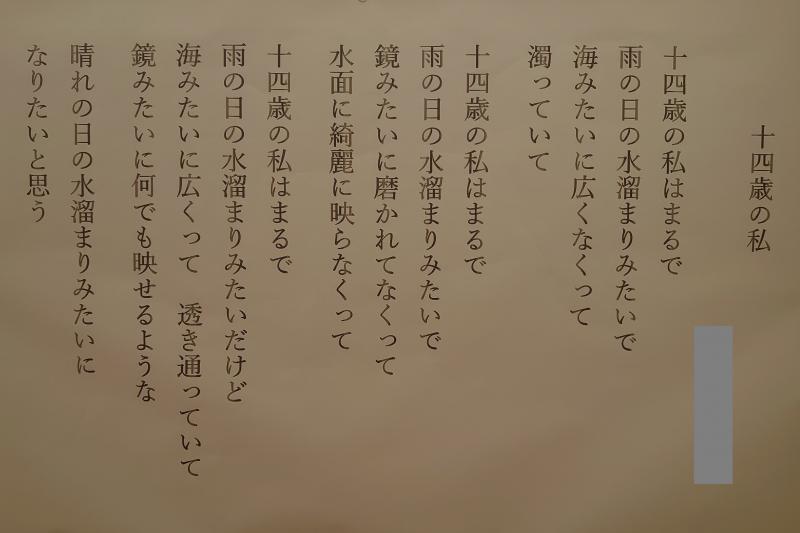 十四歳の私
十四歳の私はまるで
雨の日の水溜まりみたいで
海みたいに広くなくって
濁っていて
十四歳の私はまるで
雨の日の水溜まりみたいで
鏡みたいに磨かれてなくって
水面に綺麗に映らなくって
十四歳の私はまるで
雨の日の水溜まりみたいだけど
海みたいに広くって　透き通っていて
鏡みたいに何でも映せるような
晴れの日の水溜まりみたいに
なりたいと思う